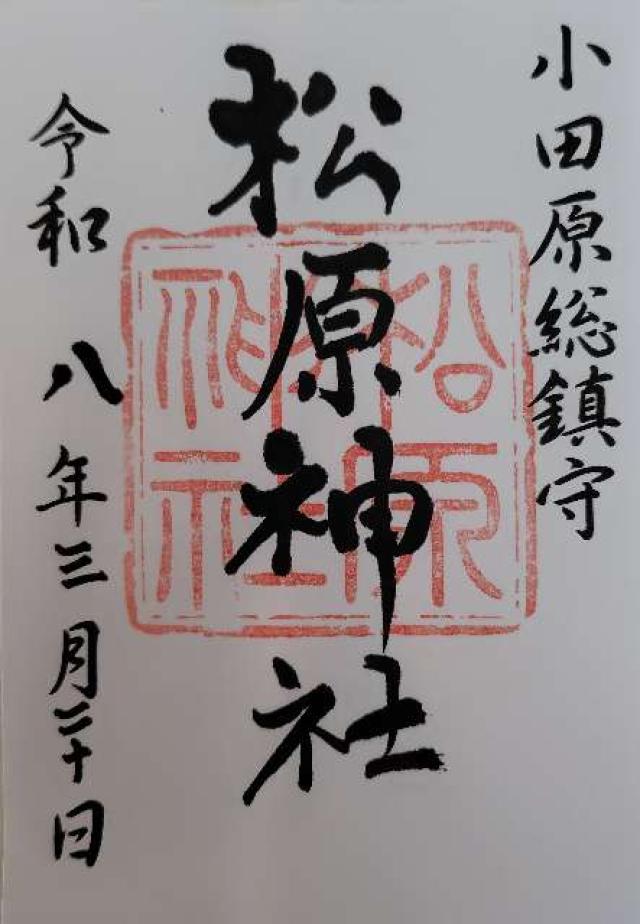 小田原総鎮守
松原神社
松原神社
令和八年三月二十日